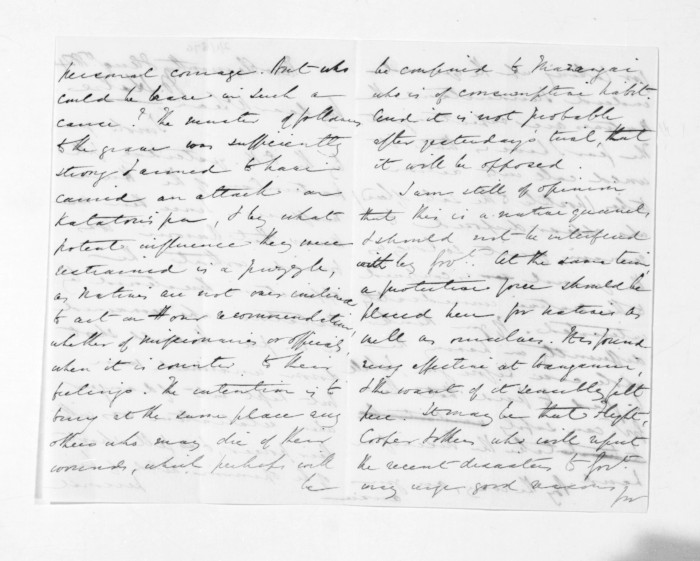 personal courage. But who
could be base in such a
cause? The muster of followers
to the grave was sufficiently
strong & armed to have
carried an attack on
Katatoris pa, & by what
potent influence they were
restrained is a puzzle,
as natives are not over inclined
to act on our recommendation,
whether of missionaries or officials,
when it is counter to their
feelings. The intention is to
bury at the same place any
others who may die of their
wounds, which perhaps will
be
be confined to
who is of consumptive habit.
And it is not probable
after yesterday's trial, that
it will be opposed.
I am still of opinion
that this is a native quarrel,
& should not be interfered
with by Govt. At the same time
a protective force should be
placed here for natives as
well as ourselves. It is found
very effective at Wanganui,
& the want of it sensibly felt
here. It may be that Flight,
Cooper & others who will report
the recent disasters to Govt.
may urge good reasons
for